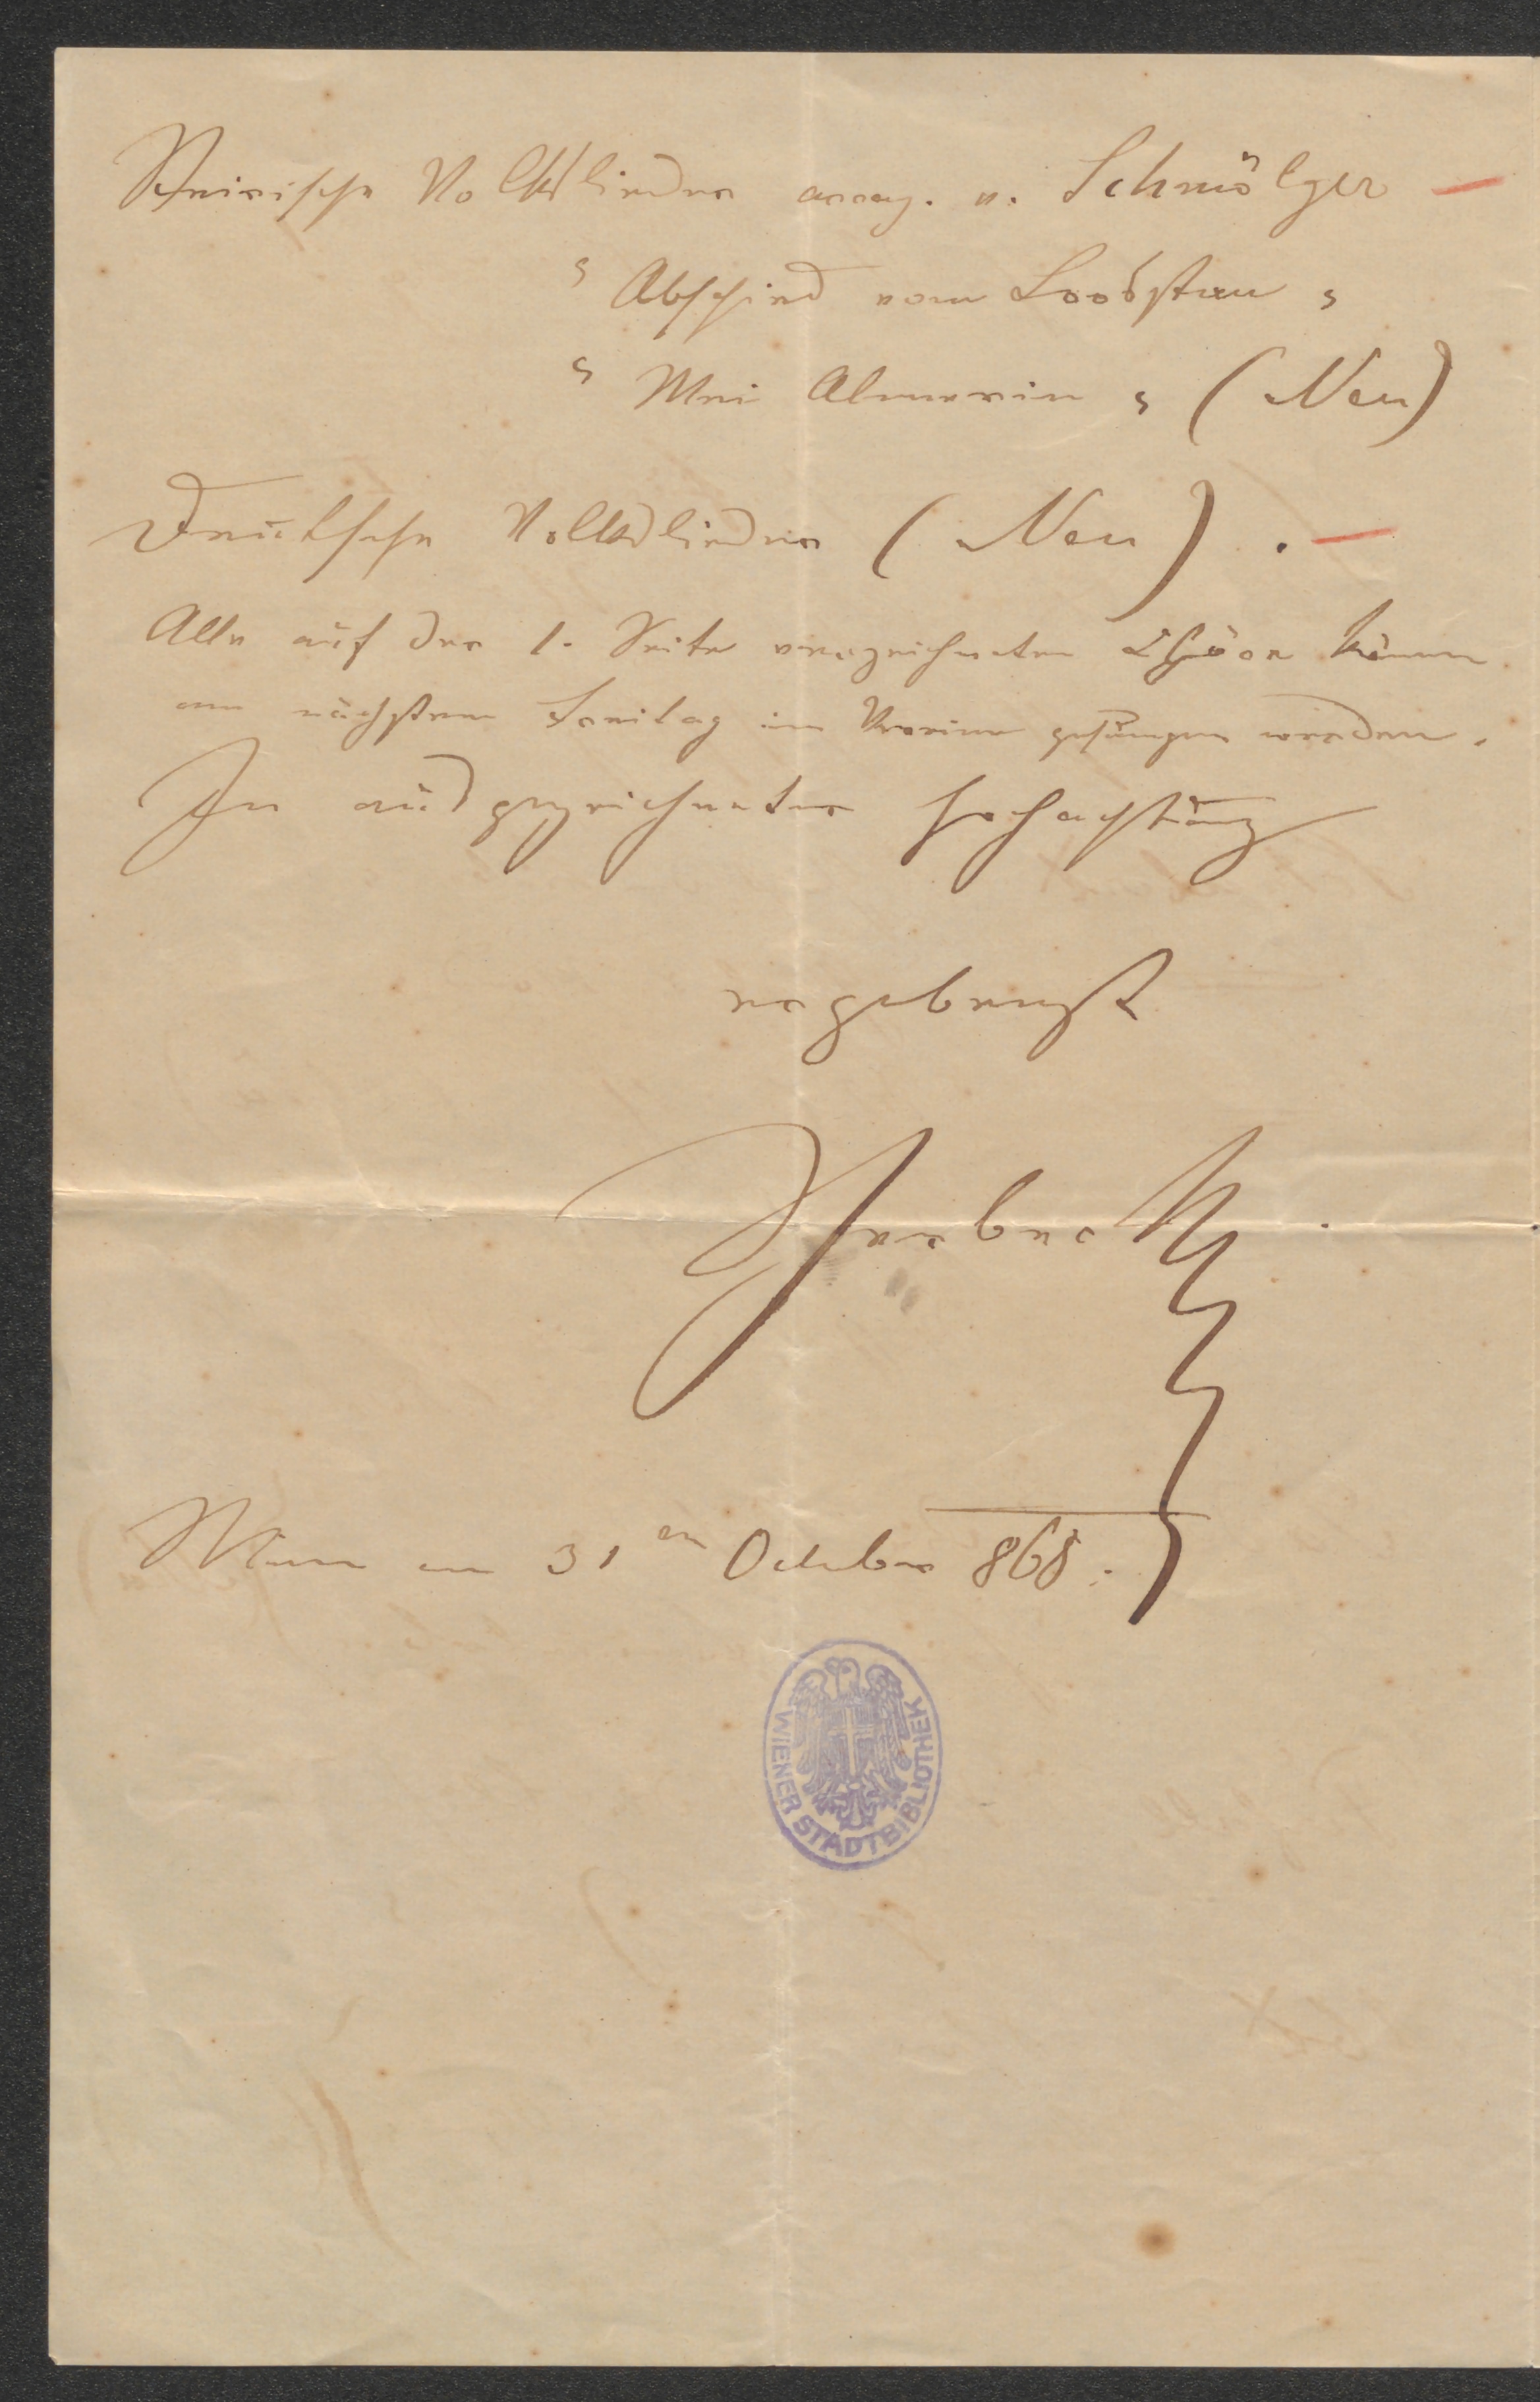 Steirische Volkslieder arrag. v. Schmölzer —
" Abschied vom "
" Mei Almerin " (Neu)
Deutsche Volkslieder (Neu). —
Alle auf der 1. Seite verzeichneten Chöre können
am nächsten Freitag im Vereine gesungen werden.
In ausgezeichneter Hochachtung
ergebenst
Herbeck
Wien am 31en October 868.
WIENER STADTBIBLIOTHEK